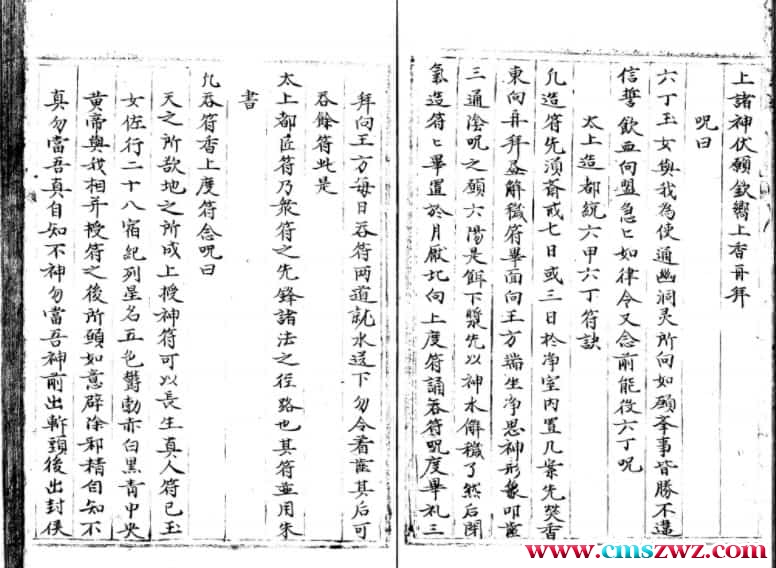 上諸神伏願欽嚮上香再拜
呪曰
六丁玉女與我為使通幽洞灵所向如願舉事皆勝不違
信誓歃血向盟急〻如律令又念前能役六丁呪
太上造都統六甲六丁符訣
凡造符先須齋戒七日或三日於净室内置几案先焚香
東向再拜 解穢符畢面向王方端坐净思神形象叩齒
三通陰呪之願六陽是餌下漿先以神水解穢了然后閉
氣造符〻畢置於月厭北向上度符誦吞符呪度畢礼三
拜向王方每日吞符两道就水送下勿令着齒其后可
吞餘符此是
太上都匠符乃衆符之先鋒諸法之徑路也其符並用朱
書
凢吞符香上度符念呪曰
天之所啟地之所成上授神符可以長生真人符已玉
女佐行二十八宿紀列星名五色欝勃赤白黑青中央
黄帝與我相并授符之後所願如意辟除邪精自知不
真勿當吾真自知不神勿當吾神前出斬頭後出封侯
www.cmszwz.com